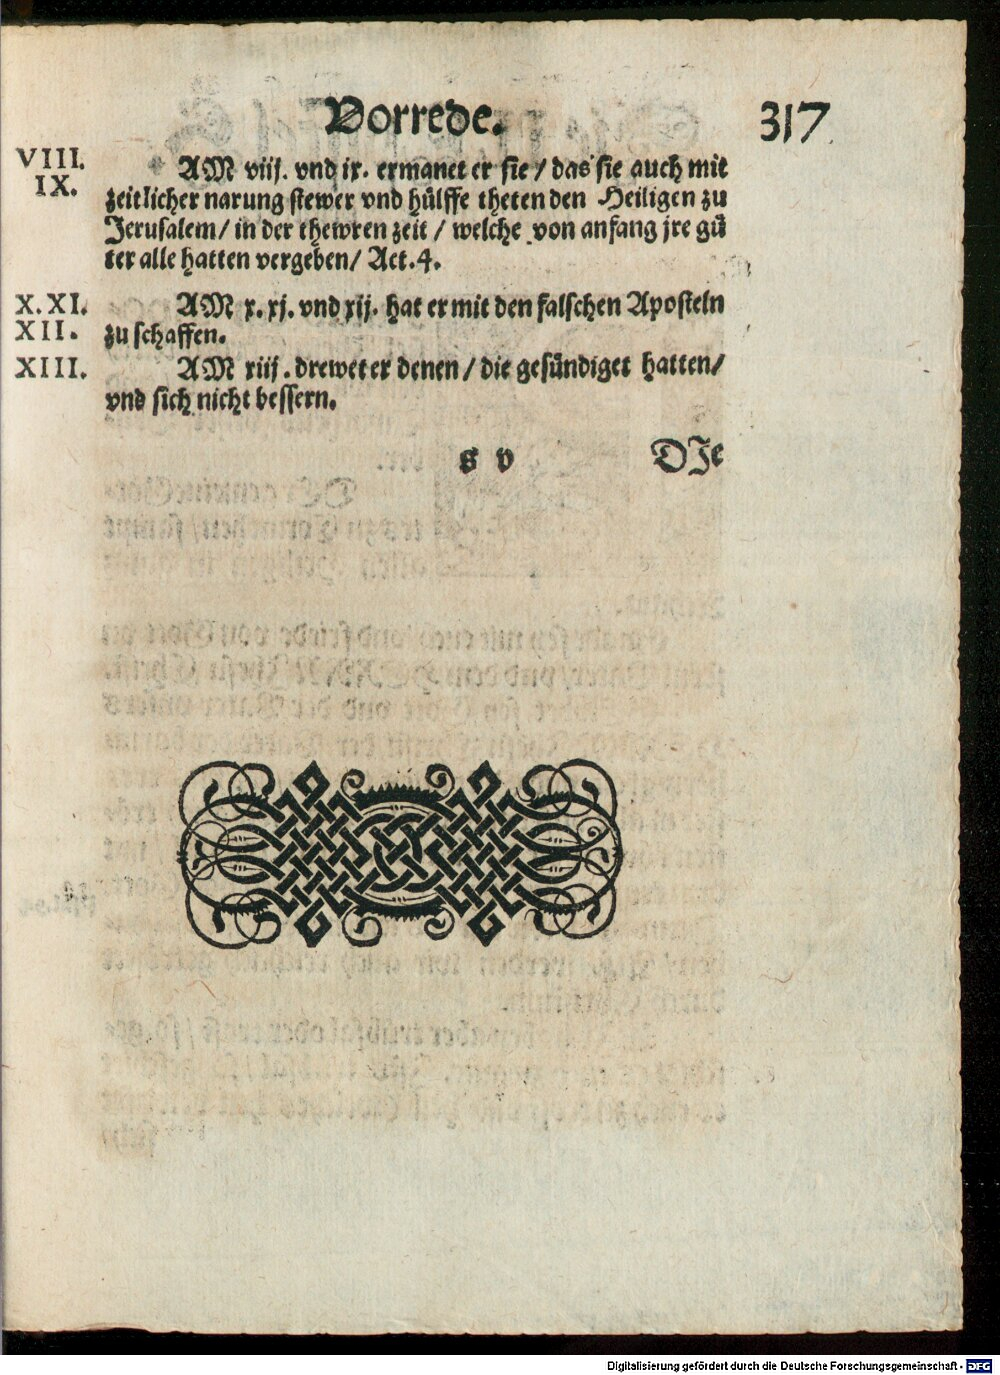 Vorrede.
317
VIII.
IX.
AM viij. vnd ix. ermanet er sie / das sie auch mit
zeitlicher narung stewer vnd hülffe theten den Heiligen zu
Jerusalem / in der thewren zeit / welche von anfang jre gü
ter alle hatten vergeben / Act. 4.
X. XI.
XII.
AM x. xj. vnd xij. hat er mit den falschen Aposteln
zu schaffen.
XIII.
AM xiij. drewet er denen / die gesündiget hatten /
vnd sich nicht bessern.
s v
DJe
Digitalisierung gefördert durch die Deutsche Forschungsgemeinschaft - DFG